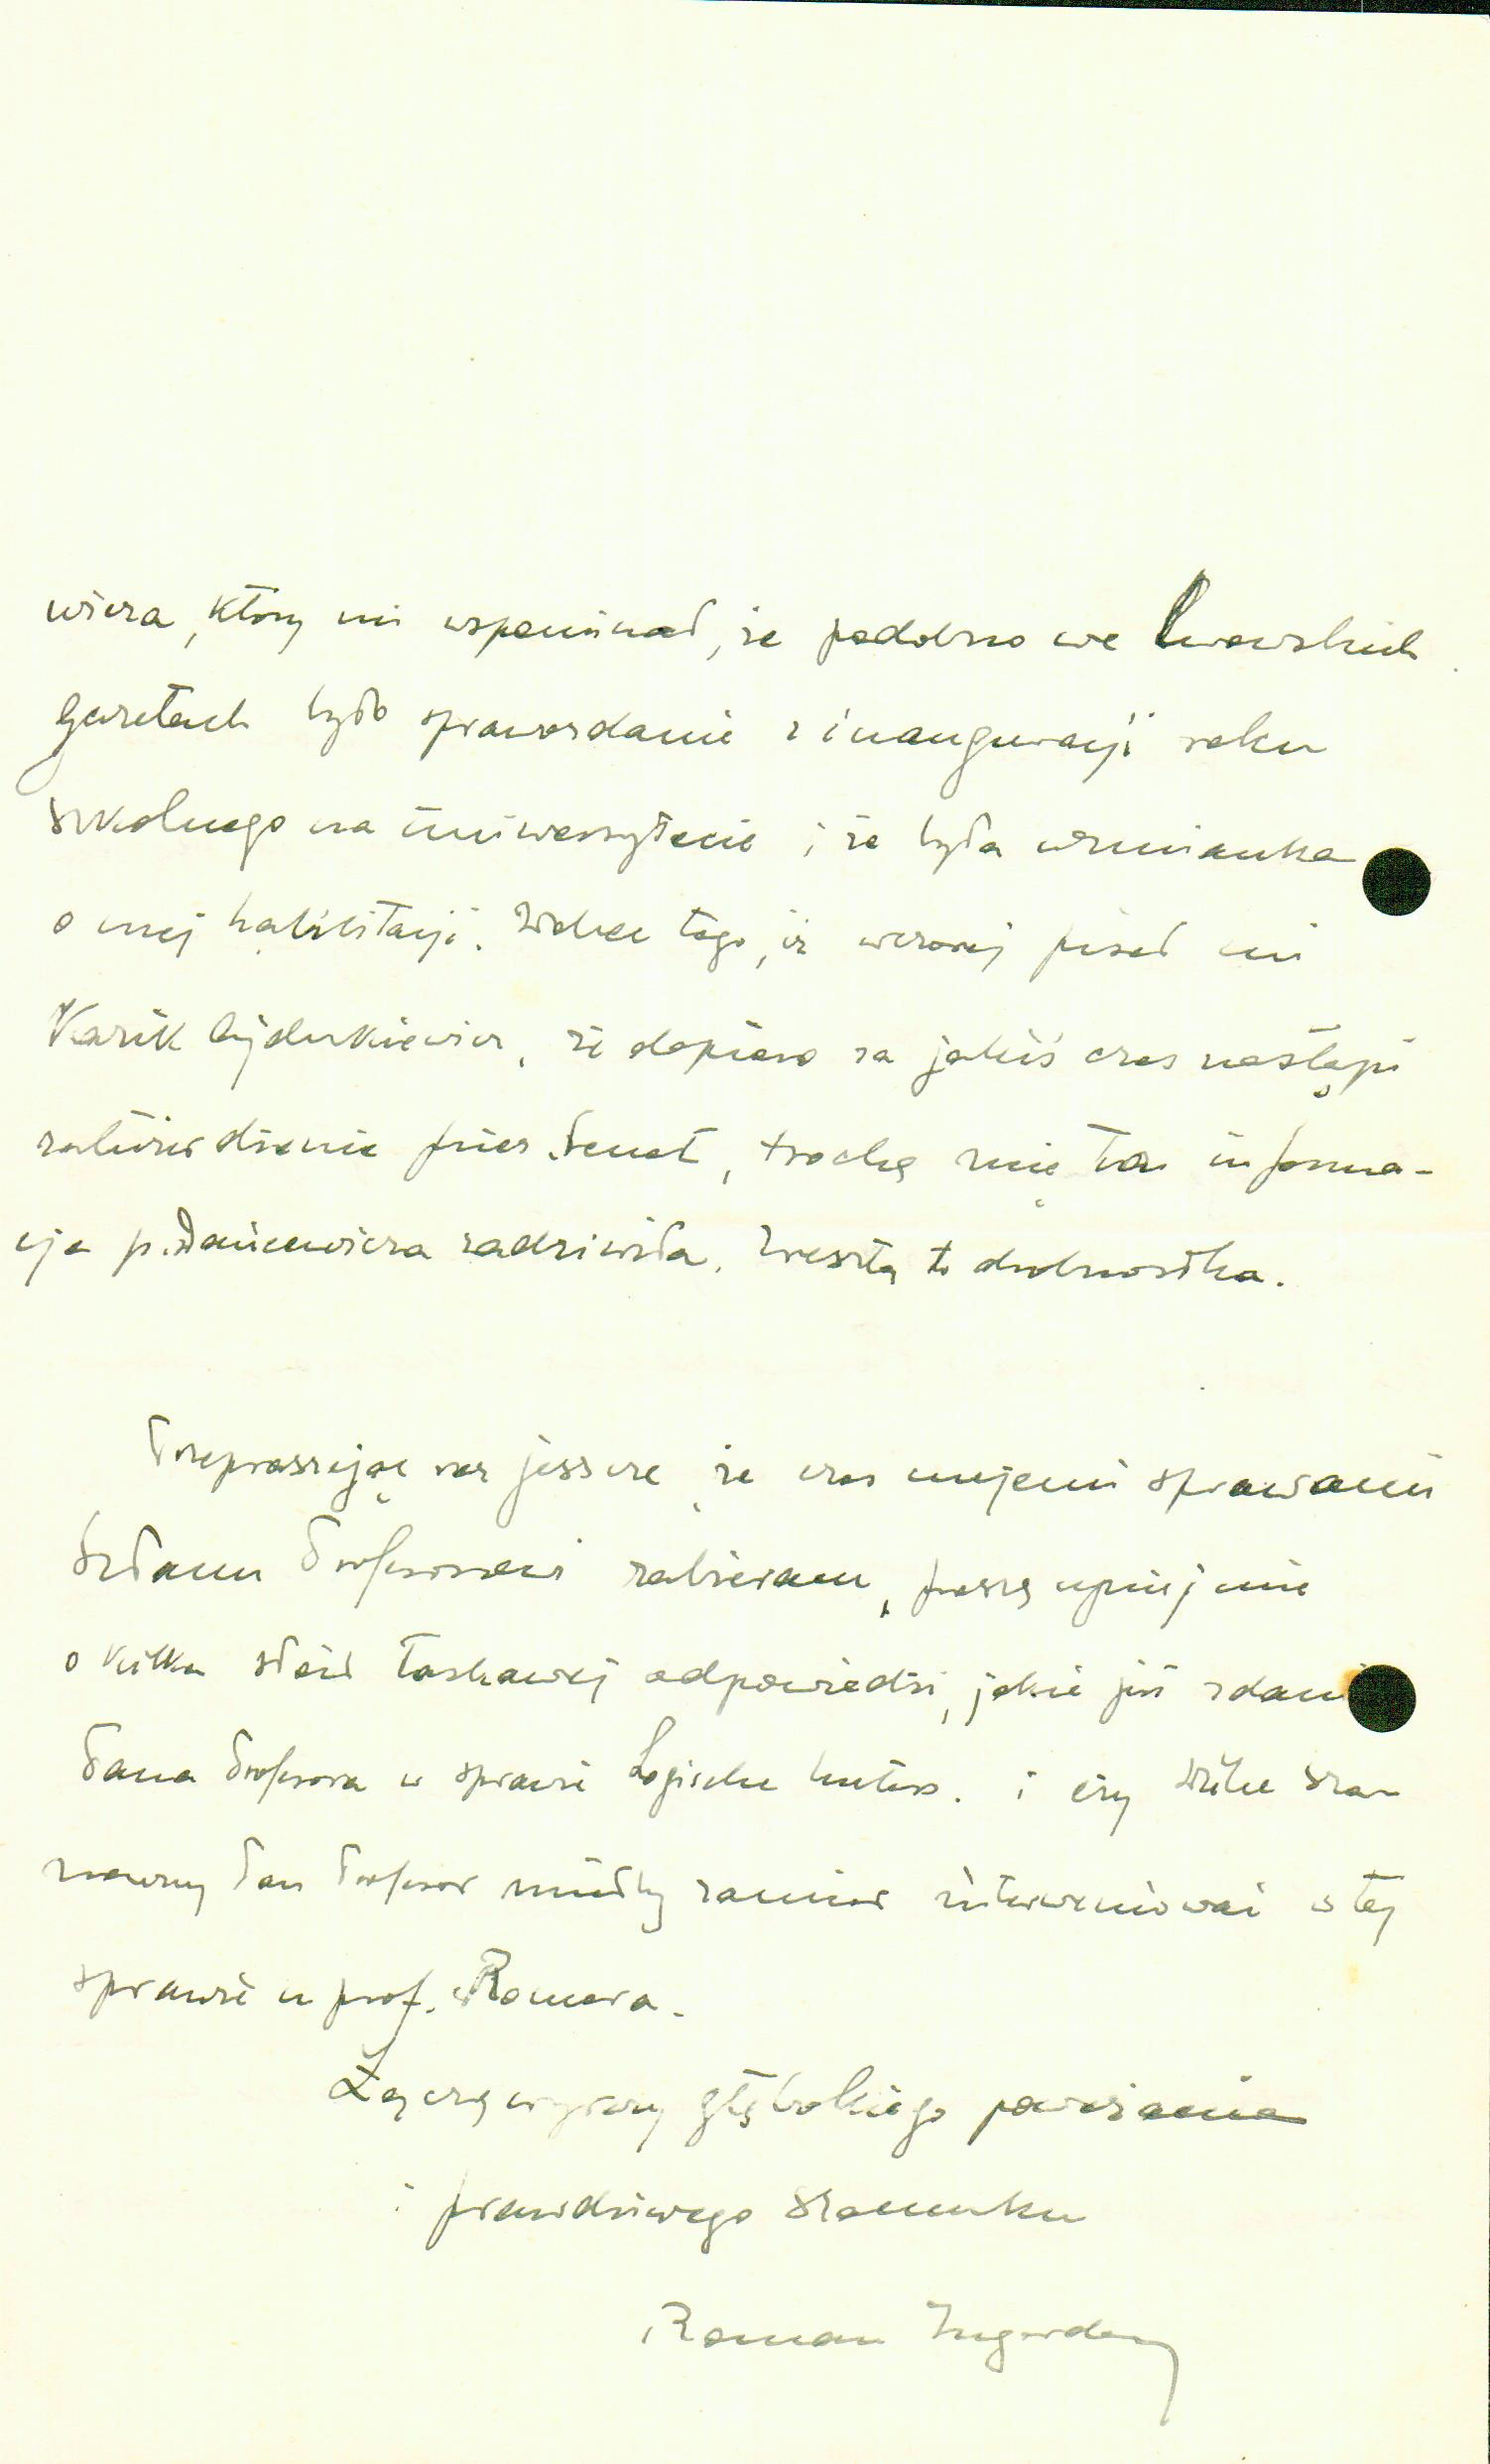 wicza, który mi wspominał, że podobno we lwowskich
gazetach było sprawozdanie z inauguracji roku
szkolnego na uniwersytecie i że była wzmianka
o mej habilitacji. Wobec tego, iż wczoraj pisał mi
Kazik Ajdukiewicz, że dopiero za jakiś czas nastąpi
zatwierdzenie przez Senat, trochę mię ta informa-
cja p. zadziwiła. Zresztą to drobnostka.
Przepraszając raz jeszcze, że czas mojemi sprawami
Panu Profesorowi zabieram, proszę uprzejmie
o kilka słów łaskawej odpowiedzi, jakie jest zdanie
Pana Profesora w sprawie Logische Unters. i czy Wielce Sza-
nowny Pan Profesor miałby zamiar interweniować w tej
sprawie u prof. Romera.
Łączę wyrazy głębokiego poważania
i prawdziwego szacunku
Roman Ingarden